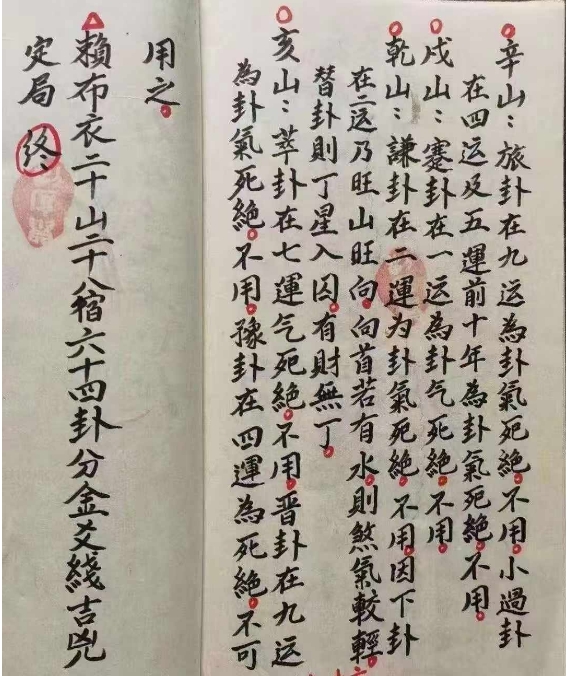 辛山：旅卦在九运為卦氣死絶。不用。小過卦
在四运及五運前十年為卦氣死絶。不用。
戌山：蹇卦在一运為卦气死絶。不用。
乾山：謙卦在二運为卦氣死絶。不用。因下卦
在二运乃旺山旺向。向首若有水。則煞氣較輕。
替卦則丁星入囚。有財無丁。
亥山：萃卦在七運气死絶。不用。晋卦在九运
為卦氣死絶。不用。豫卦在四運為死絶。不可
用之。
賴布衣二十山二十八宿六十四卦分金爻綫吉兇
定局 终